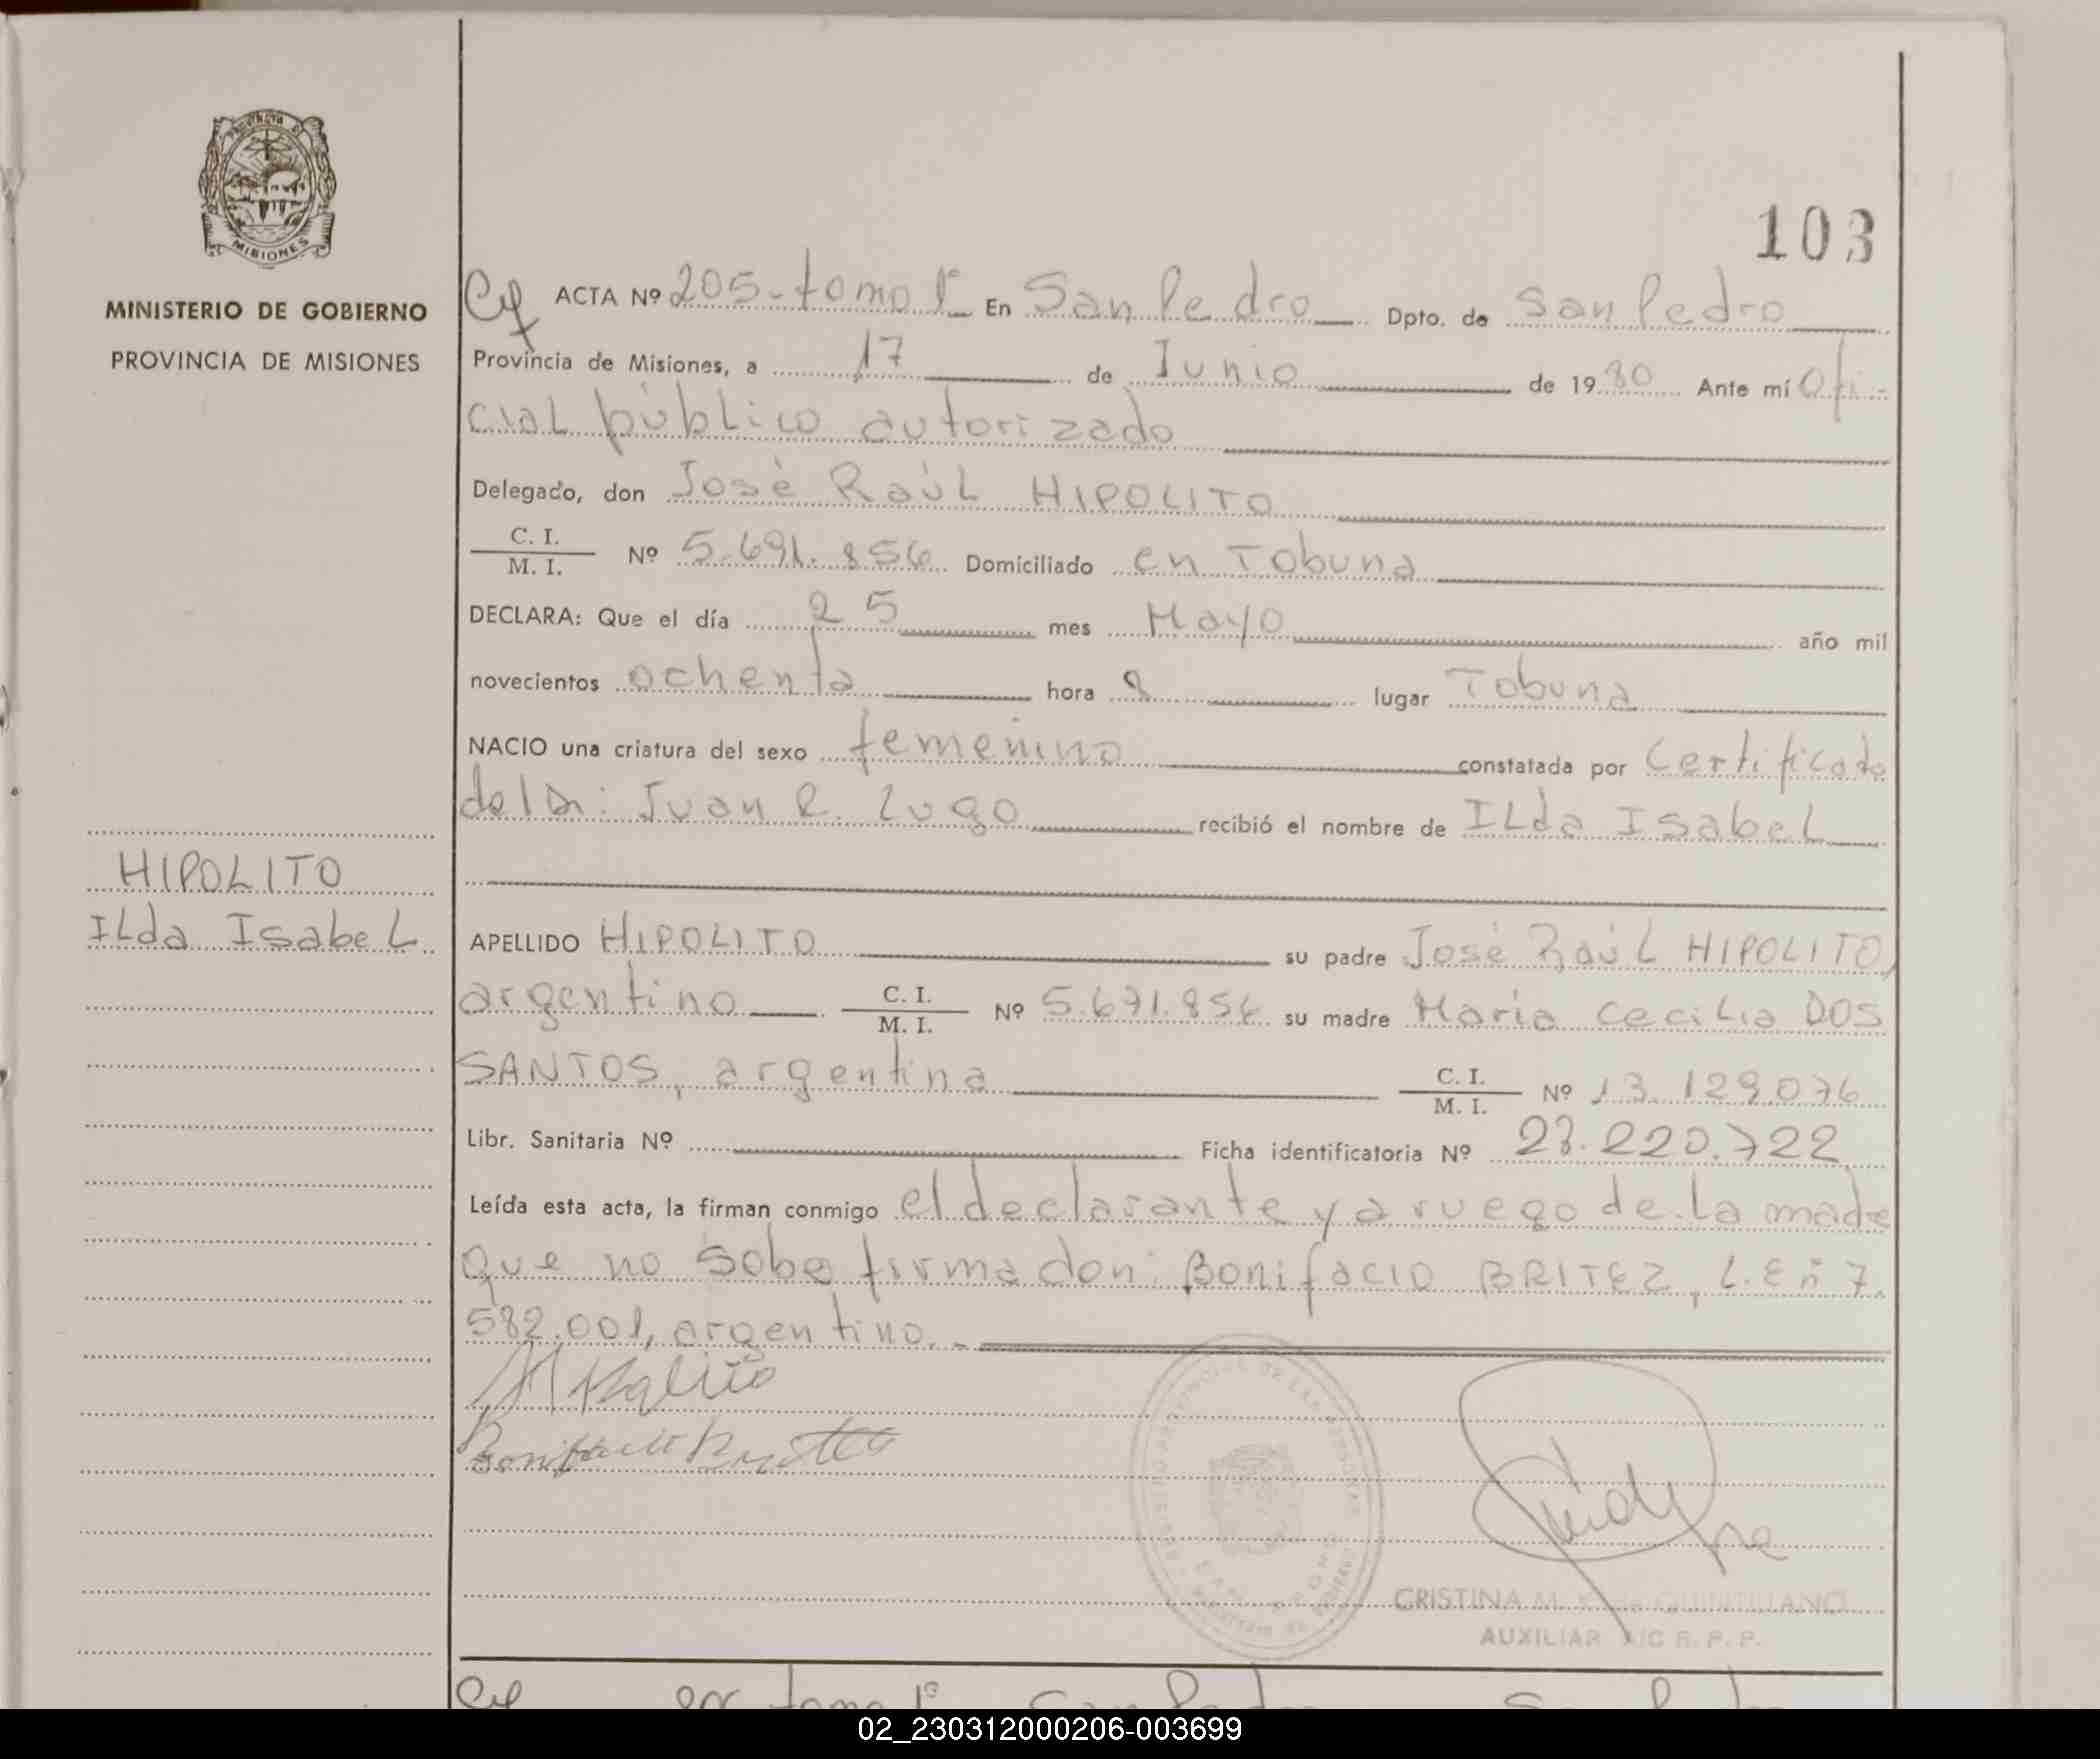 PROVINCIA DE
MISIONES
MINISTERIO DE GOBIERNO
PROVINCIA DE MISIONES
HIPOLITO
ILda IsabeL
103
ACTA Nº 205-tomo 1º En San Pedro Dpto. de San Pedro
Provincia de Misiones, a 17 de Junio de 1980 Ante mí Ofi-
ciaL público autorizado
Delegado, don José RaúL HIPOLITO
C. I.
M. I. Nº 5.691.856 Domiciliado en Tobuna
DECLARA: Que el día 25 mes Mayo año mil
novecientos ochenta hora 8 lugar Tobuna
NACIO una criatura del sexo femenino constatada por Certificado
del Dr: Juan R. Lugo recibió el nombre de ILda IsabeL
APELLIDO HIPOLITO su padre José RaúL HIPOLITO,
argentino C. I.
M. I. Nº 5.691.856 su madre Maria CeciLia DOS
SANTOS, argentina C. I.
M. I. Nº 13.129.076
Libr. Sanitaria Nº Ficha identificatoria Nº 28.220.722
Leída esta acta, la firman conmigo el declarante y a ruego de La madre
que no sabe firma don: Bonifacio BRITEZ, L.E nº 7.
582.001, argentino.-
CRISTINA M. QUINTILIANO
AUXILIAR A/C R. P. P.
tomo 1º San Pedro San Pedro
02_230312000206-003699